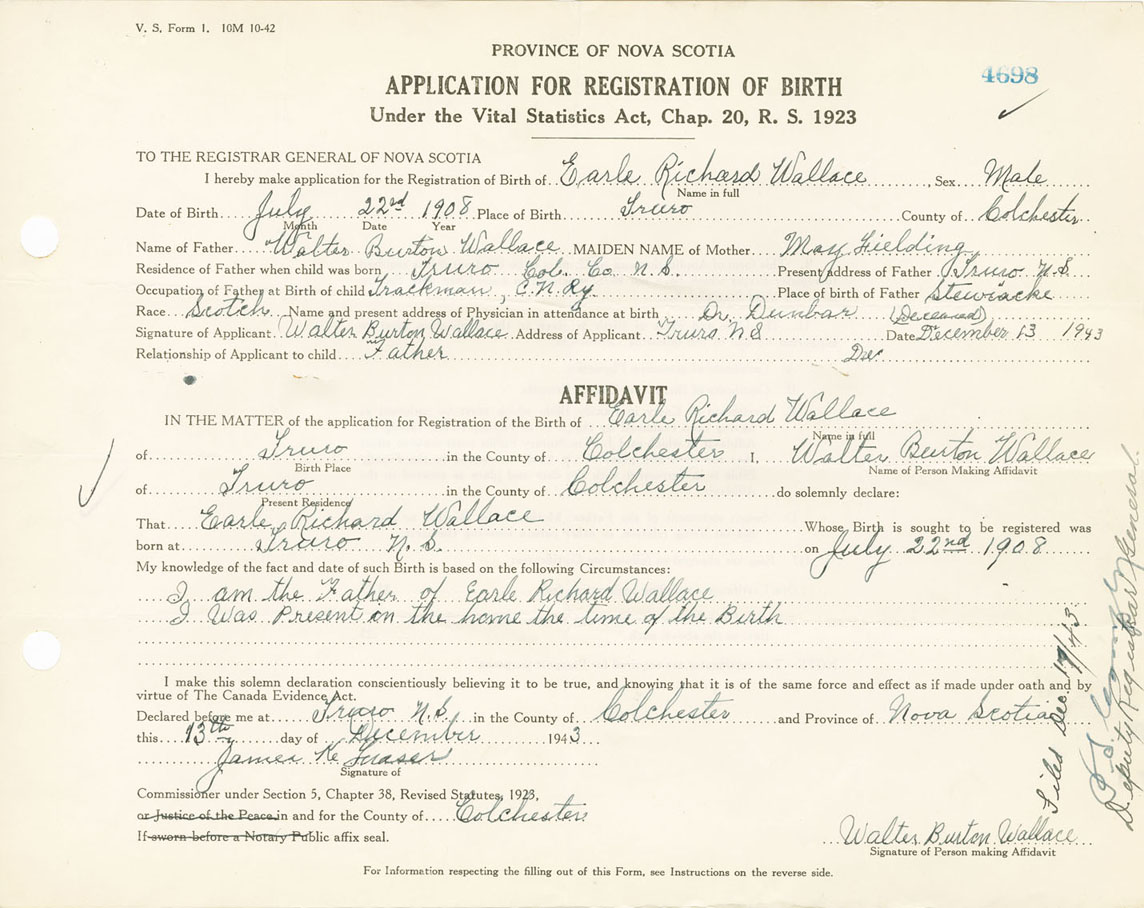 V. S. Form 1. 10M 10-42
PROVINCE OF NOVA SCOTIA
4698
APPLICATION FOR REGISTRATION OF BIRTH
Under the Vital Statistics Act, Chap. 20, R. S. 1923
TO THE REGISTRAR GENERAL OF NOVA SCOTIA
I hereby make application for the Registration of Birth of Earle Richard Wallace Sex Male
Name in full
Date of Birth July 22nd 1908 Place of Birth Truro County of Colchester
Month Date Year
Name of Father Walter Burton Wallace MAIDEN NAME of Mother May Fielding
Residence of Father when child was born Truro Col. Co. N.S. Present address of Father Truro N.S.
Occupation of Father at Birth of child Trackman, C.N.Ry. Place of birth of Father Stewiacke
Race Scotch Name and present address of Physician in attendance at birth Dr. Dunbar (Deceased)
Signature of Applicant Walter Burton Wallace Address of Applicant Truro N S Date December 13 1943
Relationship of Applicant to child Father Dec
AFFIDAVIT
IN THE MATTER of the application for Registration of the Birth of Earle Richard Wallace
Name in full
of Truro in the County of Colchester I, Walter Burton Wallace
Birth Place Name of Person Making Affidavit
of Truro in the County of Colchester do solemnly declare:
Present Residence
That Earle Richard Wallace Whose Birth is sought to be registered was
born at Truro N.S. on July 22nd 1908
My knowledge of the fact and date of such Birth is based on the following Circumstances:
I am the Father of Earle Richard Wallace
I Was Present in the home the time of the Birth
I make this solemn declaration conscientiously believing it to be true, and knowing that it is of the same force and effect as if made under oath and by
virtue of The Canada Evidence Act.
Declared before me at Truro N.S. in the County of Colchester and Province of Nova Scotia
this 13th day of December 1943
James K. Fraser
Signature of
Commissioner under Section 5, Chapter 38, Revised Statutes, 1923,
or Justice of the Peace in and for the County of Colchester
If sworn before a Notary Public affix seal.
Walter Burton Wallace
Signature of Person making Affidavit
For Information respecting the filling out of this Form, see Instructions on the reverse side.
Filed Dec. 17/43
Deputy Registrar General.